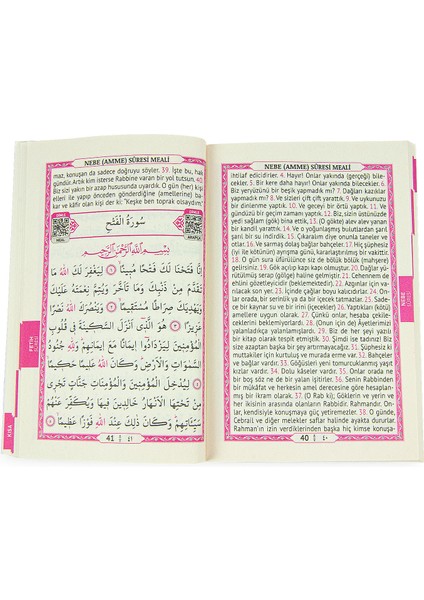 NEBE (AMME) SÛRESİ MEALİ
ihtilaf edicidirler. 4. Hayır! Onlar yakında (gerçeği) bile-
cekler. 5. Bir kere daha hayır! Onlar yakında bilecekler. 6.
Biz yeryüzünü bir beşik yapmadık mı? 7. Dağları kazıklar
yapmadık mı? 8. Ve sizleri çift çift yarattık. 9. Ve uykunuzu
bir dinlenme yaptık. 10. Ve geceyi bir örtü yaptık. 11. Ve
gündüzü bir geçim zamanı yaptık. 12. Biz, sizin üstünüzde
yedi sağlam (gök) bina ettik. 13. (O gökte) alev alev yanan
bir kandil yarattık. 14. Ve o yoğunlaşmış bulutlardan şarıl
şarıl bir su indirdik. 15. Çıkaralım diye onunla taneler ve
otlar. 16. Ve sarmaş dolaş bağlar bahçeler. 17. Hiç şüphesiz
(iyi ile kötünün) ayrışma günü, kararlaştırılan bir vakittir.
18. O gün sura üfürülünce siz de bölük bölük (mahşere)
gelirsiniz. 19. Gök açılıp kapı kapı olmuştur. 20. Dağlar yü-
rütülmüş serap (gölge) haline gelmiştir. 21. Cehennem de
(ehlini) gözetleyicidir (beklemektedir). 22. Azgınlar için va-
rılacak son yer. 23. İçinde çağlar boyu kalıcıdırlar. 24. On-
lar orada, bir serinlik ya da bir içecek tatmazlar. 25. Sade-
ce bir kaynar su ve bir irin (içerler). 26. Yaptıkları (kötü)
işlere uygun olarak. 27. Çünkü onlar, hesaba çekile-
ceklerini beklemiyorlardı. 28. (Onun için de) Âyetlerimizi
yalanladıkça yalanlıyorlardı. 29. Biz ise, her şeyi
bir kitap olarak tespit etmiştik. 30. Şimdi ise tadınız! Biz
size azaptan başka bir şey artırmayacağız. 31. Şüphesiz
muttakiler için kurtuluş ve murada erme var. 32. Bahçeler
ve bağlar vardır. 33. Göğüsleri yeni tomurcuklanmış yaşıt
kızlar. 34. Dolu kâseler vardır. 35. Onlar orada ne
bir boş söz ne de bir yalan işitirler. 36. Senin Rabbinden
bir mükâfat ki herkesin amel derecesine göre hesaplan-
mış bir ikram. 37. (O Rab ki); Göklerin ve yerin ve
her ikisinin arasında olanların Rabbidir. Rahmandır. On-
lar, kendisiyle konuşmaya güç yetiremezler. 38. O günde,
Cebrail ve diğer melekler saflar halinde ayakta dururlar.
Rahman'ın izin verdiklerinden başka hiç kimse konuşa-
40 ٤٠
NEBE
SÛRESİ
NEBE (AMME) SÛRESİ MEALİ
maz, konuşan da sadece doğruyu söyler. 39. İşte bu, hak
gündür. Artık kim isterse Rabbine varan bir yol tutsun. 40.
Biz sizi yakın bir azap hususunda uyardık. O gün (her) kişi
elleri ile yapıp önceden gönderdiğine (amellerine) bak-
kar ve kâfir olan kişi der ki: "Keşke ben toprak olsaydım."
MEAL
سُورَةُ الْفَتْحِ
ARAPÇA
بِسْمِ اللّٰهِ الرَّحْمٰنِ الرَّحِيمِ
اِنَّا فَتَحْنَا لَكَ فَتْحًا مُبِينًا ﴿١﴾ لِيَغْفِرَ لَكَ اللّٰهُ مَا
تَقَدَّمَ مِنْ ذَنْبِكَ وَمَا تَاَخَّرَ وَيُتِمَّ نِعْمَتَهُ عَلَيْكَ
وَيَهْدِيَكَ صِرَاطًا مُسْتَقِيمًا ﴿٢﴾ وَيَنْصُرَكَ اللّٰهُ نَصْرًا
عَزِيزًا ﴿٣﴾ هُوَ الَّذِي اَنْزَلَ السَّكِينَةَ فِي قُلُوبِ
الْمُؤْمِنِينَ لِيَزْدَادُوا اِيمَانًا مَعَ اِيمَانِهِمْ وَلِلّٰهِ جُنُودُ
السَّمٰوَاتِ وَالْاَرْضِ وَكَانَ اللّٰهُ عَلِيمًا حَكِيمًا
﴿٤﴾ لِيُدْخِلَ الْمُؤْمِنِينَ وَالْمُؤْمِنَاتِ جَنَّاتٍ تَجْرِي
مِنْ تَحْتِهَا الْاَنْهَارُ خَالِدِينَ فِيهَا وَيُكَفِّرَ عَنْهُمْ
سَيِّئَاتِهِمْ وَكَانَ ذٰلِكَ عِنْدَ اللّٰهِ فَوْزًا عَظِيمًا ﴿٥﴾
41 ٤١
FETH
SÛRESİ
KISA